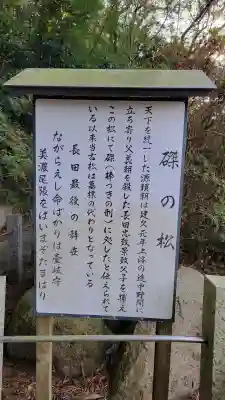 磔の松
天下を統一した源頼朝は建久元年上洛の途中野間に
立ち寄り父義朝を殺した長田忠致景致父子を捕え
この松にて磔(棒つきの刑)に処したと伝えられて
いる以来当古松は墓標の代わりとなっている
長田最後の辞世
ながらえし命ばかりは壹岐守
美濃尾張をばいまぞたまはり